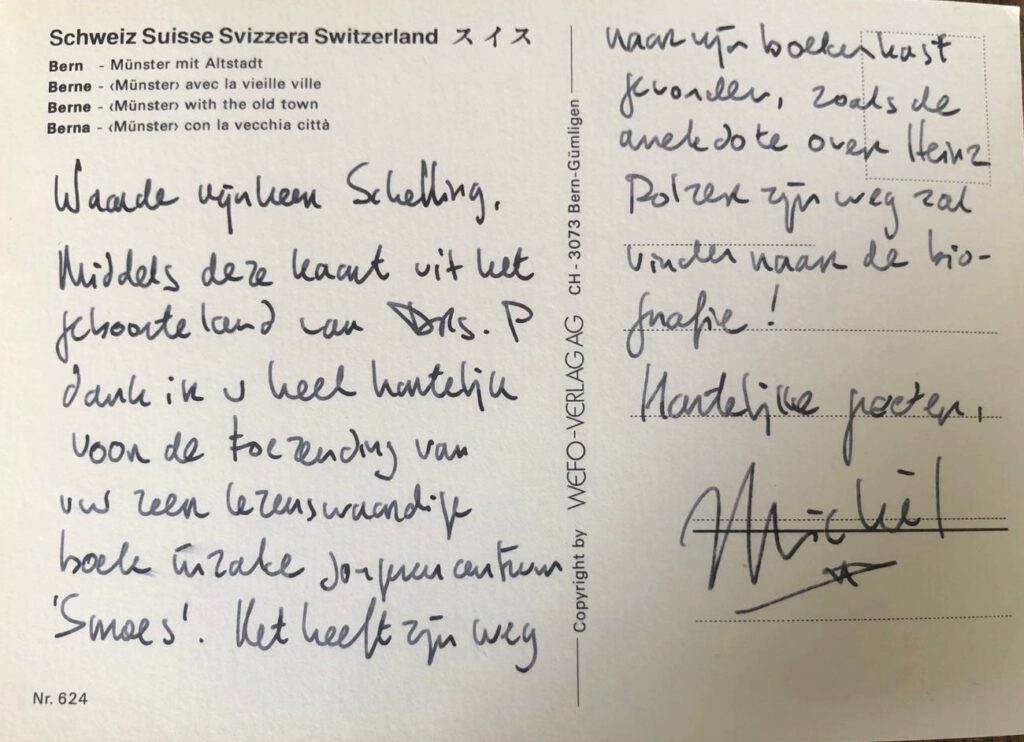 Schweiz Suisse Svizzera Switzerland スイス
Bern - Münster mit Altstadt
Berne - ‹Münster› avec la vieille ville
Berne - ‹Münster› with the old town
Berna - ‹Münster› con la vecchia città
Waarde mijnheer Schelling,
Middels deze kaart uit het
geboorteland van Drs. P
dank ik u heel hartelijk
voor de toezending van
uw zeer lezenswaardige
boek inzake jongerencentrum
'Smoes'. Het heeft zijn weg
Nr. 624
Copyright by WEFO-VERLAG AG CH - 3073 Bern-Gümligen
naar mijn boekenkast
gevonden, zoals de
anekdote over Heinz
Polzer zijn weg zal
vinden naar de bio-
grafie!
Hartelijke groeten,
Michiel